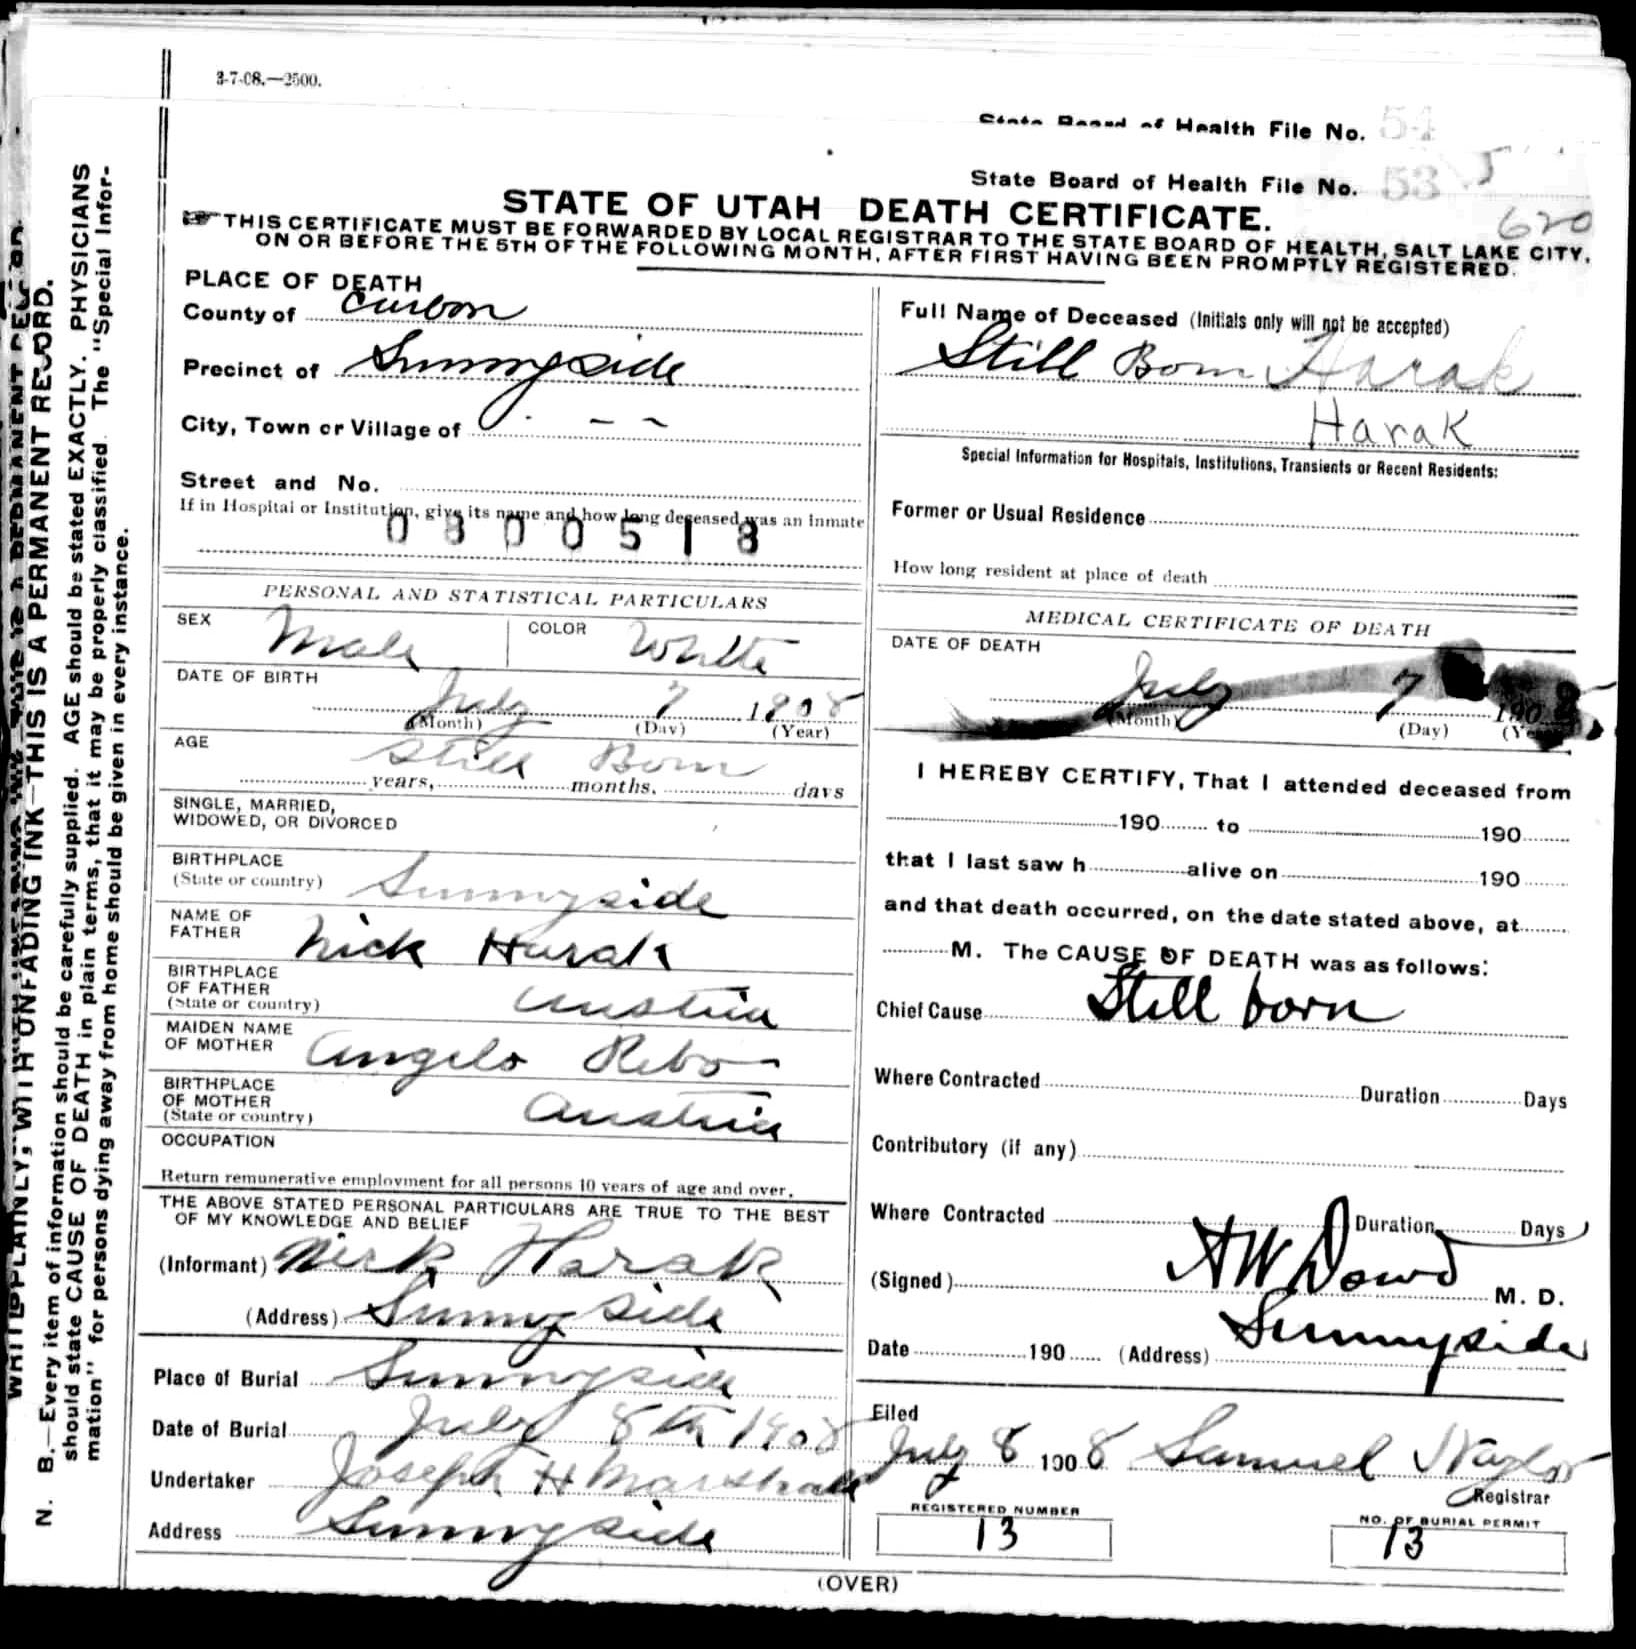 3-7-08.—2500.
State Board of Health File No. 54
State Board of Health File No. 53 5
620
STATE OF UTAH DEATH CERTIFICATE.
☞THIS CERTIFICATE MUST BE FORWARDED BY LOCAL REGISTRAR TO THE STATE BOARD OF HEALTH, SALT LAKE CITY,
ON OR BEFORE THE 5TH OF THE FOLLOWING MONTH, AFTER FIRST HAVING BEEN PROMPTLY REGISTERED.
PLACE OF DEATH
County of Carbon
Precinct of Sunnyside
City, Town or Village of
Street and No.
If in Hospital or Institution, give its name and how long deceased was an Inmate
0800518
PERSONAL AND STATISTICAL PARTICULARS
SEX Male COLOR White
DATE OF BIRTH
July 7 1908
(Month) (Day) (Year)
AGE Still Born
years, months, days
SINGLE, MARRIED,
WIDOWED, OR DIVORCED
BIRTHPLACE
(State or country) Sunnyside
NAME OF
FATHER Nick Harak
BIRTHPLACE
OF FATHER
(State or country) Austria
MAIDEN NAME
OF MOTHER Angelo Rebo
BIRTHPLACE
OF MOTHER
(State or country) Austria
OCCUPATION
Return remunerative employment for all persons 10 years of age and over.
THE ABOVE STATED PERSONAL PARTICULARS ARE TRUE TO THE BEST
OF MY KNOWLEDGE AND BELIEF
(Informant) Nick Harak
(Address) Sunnyside
Place of Burial Sunnyside
Date of Burial July 8th 1908
Undertaker Joseph H Marshall
Address Sunnyside
Full Name of Deceased (Initials only will not be accepted)
Still Born Harak
Harak
Special Information for Hospitals, Institutions, Transients or Recent Residents:
Former or Usual Residence
How long resident at place of death
MEDICAL CERTIFICATE OF DEATH
DATE OF DEATH
July 7 1908
(Month) (Day)
I HEREBY CERTIFY, That I attended deceased from
190 to 190
that I last saw h alive on 190
and that death occurred, on the date stated above, at
M. The CAUSE OF DEATH was as follows:
Chief Cause Still born
Where Contracted Duration Days
Contributory (if any)
Where Contracted Duration Days
(Signed) A W Dowd M. D.
Date 190 (Address) Sunnyside
Filed
July 8 1908 Samuel Naylor
Registrar
REGISTERED NUMBER
13
NO. OF BURIAL PERMIT
13
(OVER)
WRITE PLAINLY, WITH UNFADING INK—THIS IS A PERMANENT RECORD.
N. B.—Every item of information should be carefully supplied. AGE should be stated EXACTLY. PHYSICIANS
should state CAUSE OF DEATH in plain terms, that it may be properly classified. The "Special Infor-
mation" for persons dying away from home should be given in every instance.